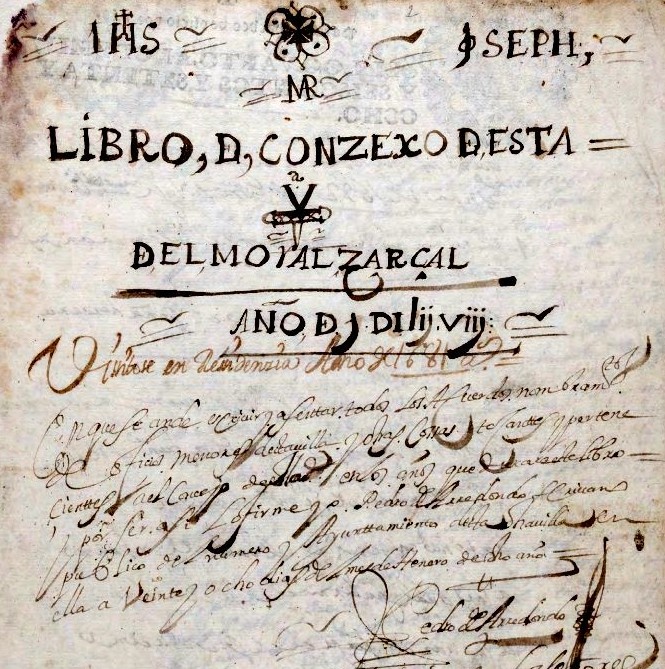 IHS JOSEPH,
MR
LIBRO, D, CONZEXO D,ESTA =
Vª
D,EL,MORALZARÇAL
AÑO, D, J, DI lij. viij.
Visitose en Residencia Año de 1681
En que se an de escriuir y asentar todos los Acuerdos nombramtos
de oficios menores desta villa y otras Cossas tocantes y pertene
cientes al Concejo della en los años que durare este libro
y por ser asi lo firme yo Pedro de Arredondo escriuano
publico del numero y Ayunttamiento desta dha villa en
ella a Veinte y ocho dias del mes de Henero de dho año
Pedro de Arredondo